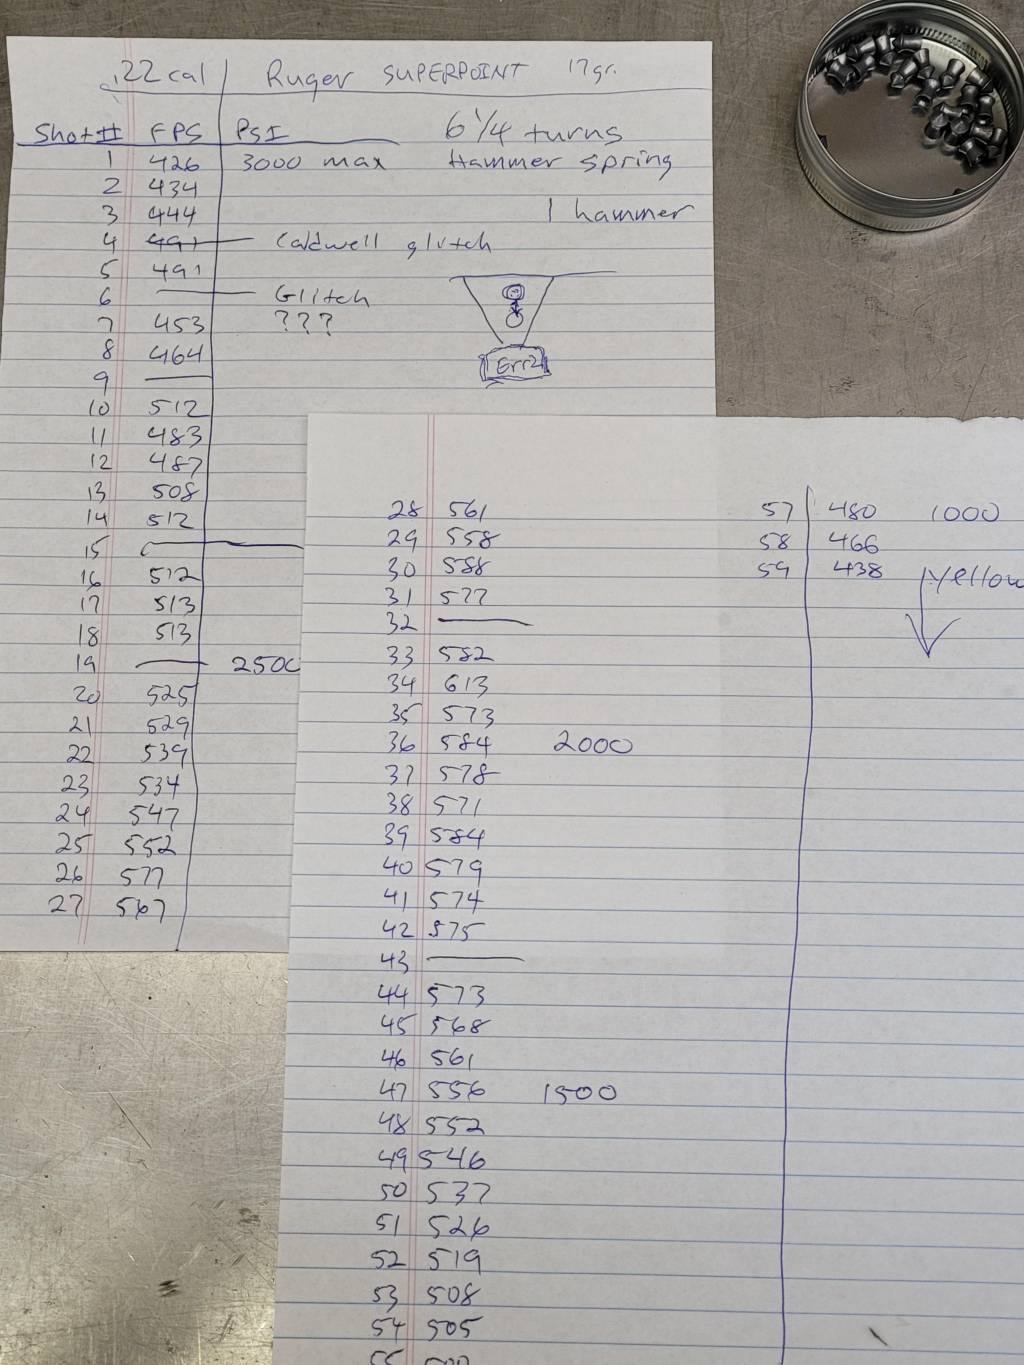 .22 cal Ruger SUPERPOINT 17gr.
Shot# FPS PSI 6 1/4 turns
1 426 3000 max Hammer spring
2 434
3 444 1 hammer
4 491 Caldwell glitch
5 491
6 — Glitch
7 453 ???
8 464
Err2
9 —
10 512
11 483
12 487
13 508
14 512
15 —
16 512
17 513
18 513
19 — 2500
20 525
21 529
22 539
23 534
24 547
25 552
26 577
27 567
28 561
29 558
30 588
31 577
32 —
33 582
34 613
35 573
36 584 2000
37 578
38 571
39 584
40 579
41 574
42 575
43 —
44 573
45 568
46 561
47 556 1500
48 552
49 546
50 537
51 526
52 519
53 508
54 505
55
57 480 1000
58 466
59 438 yellow